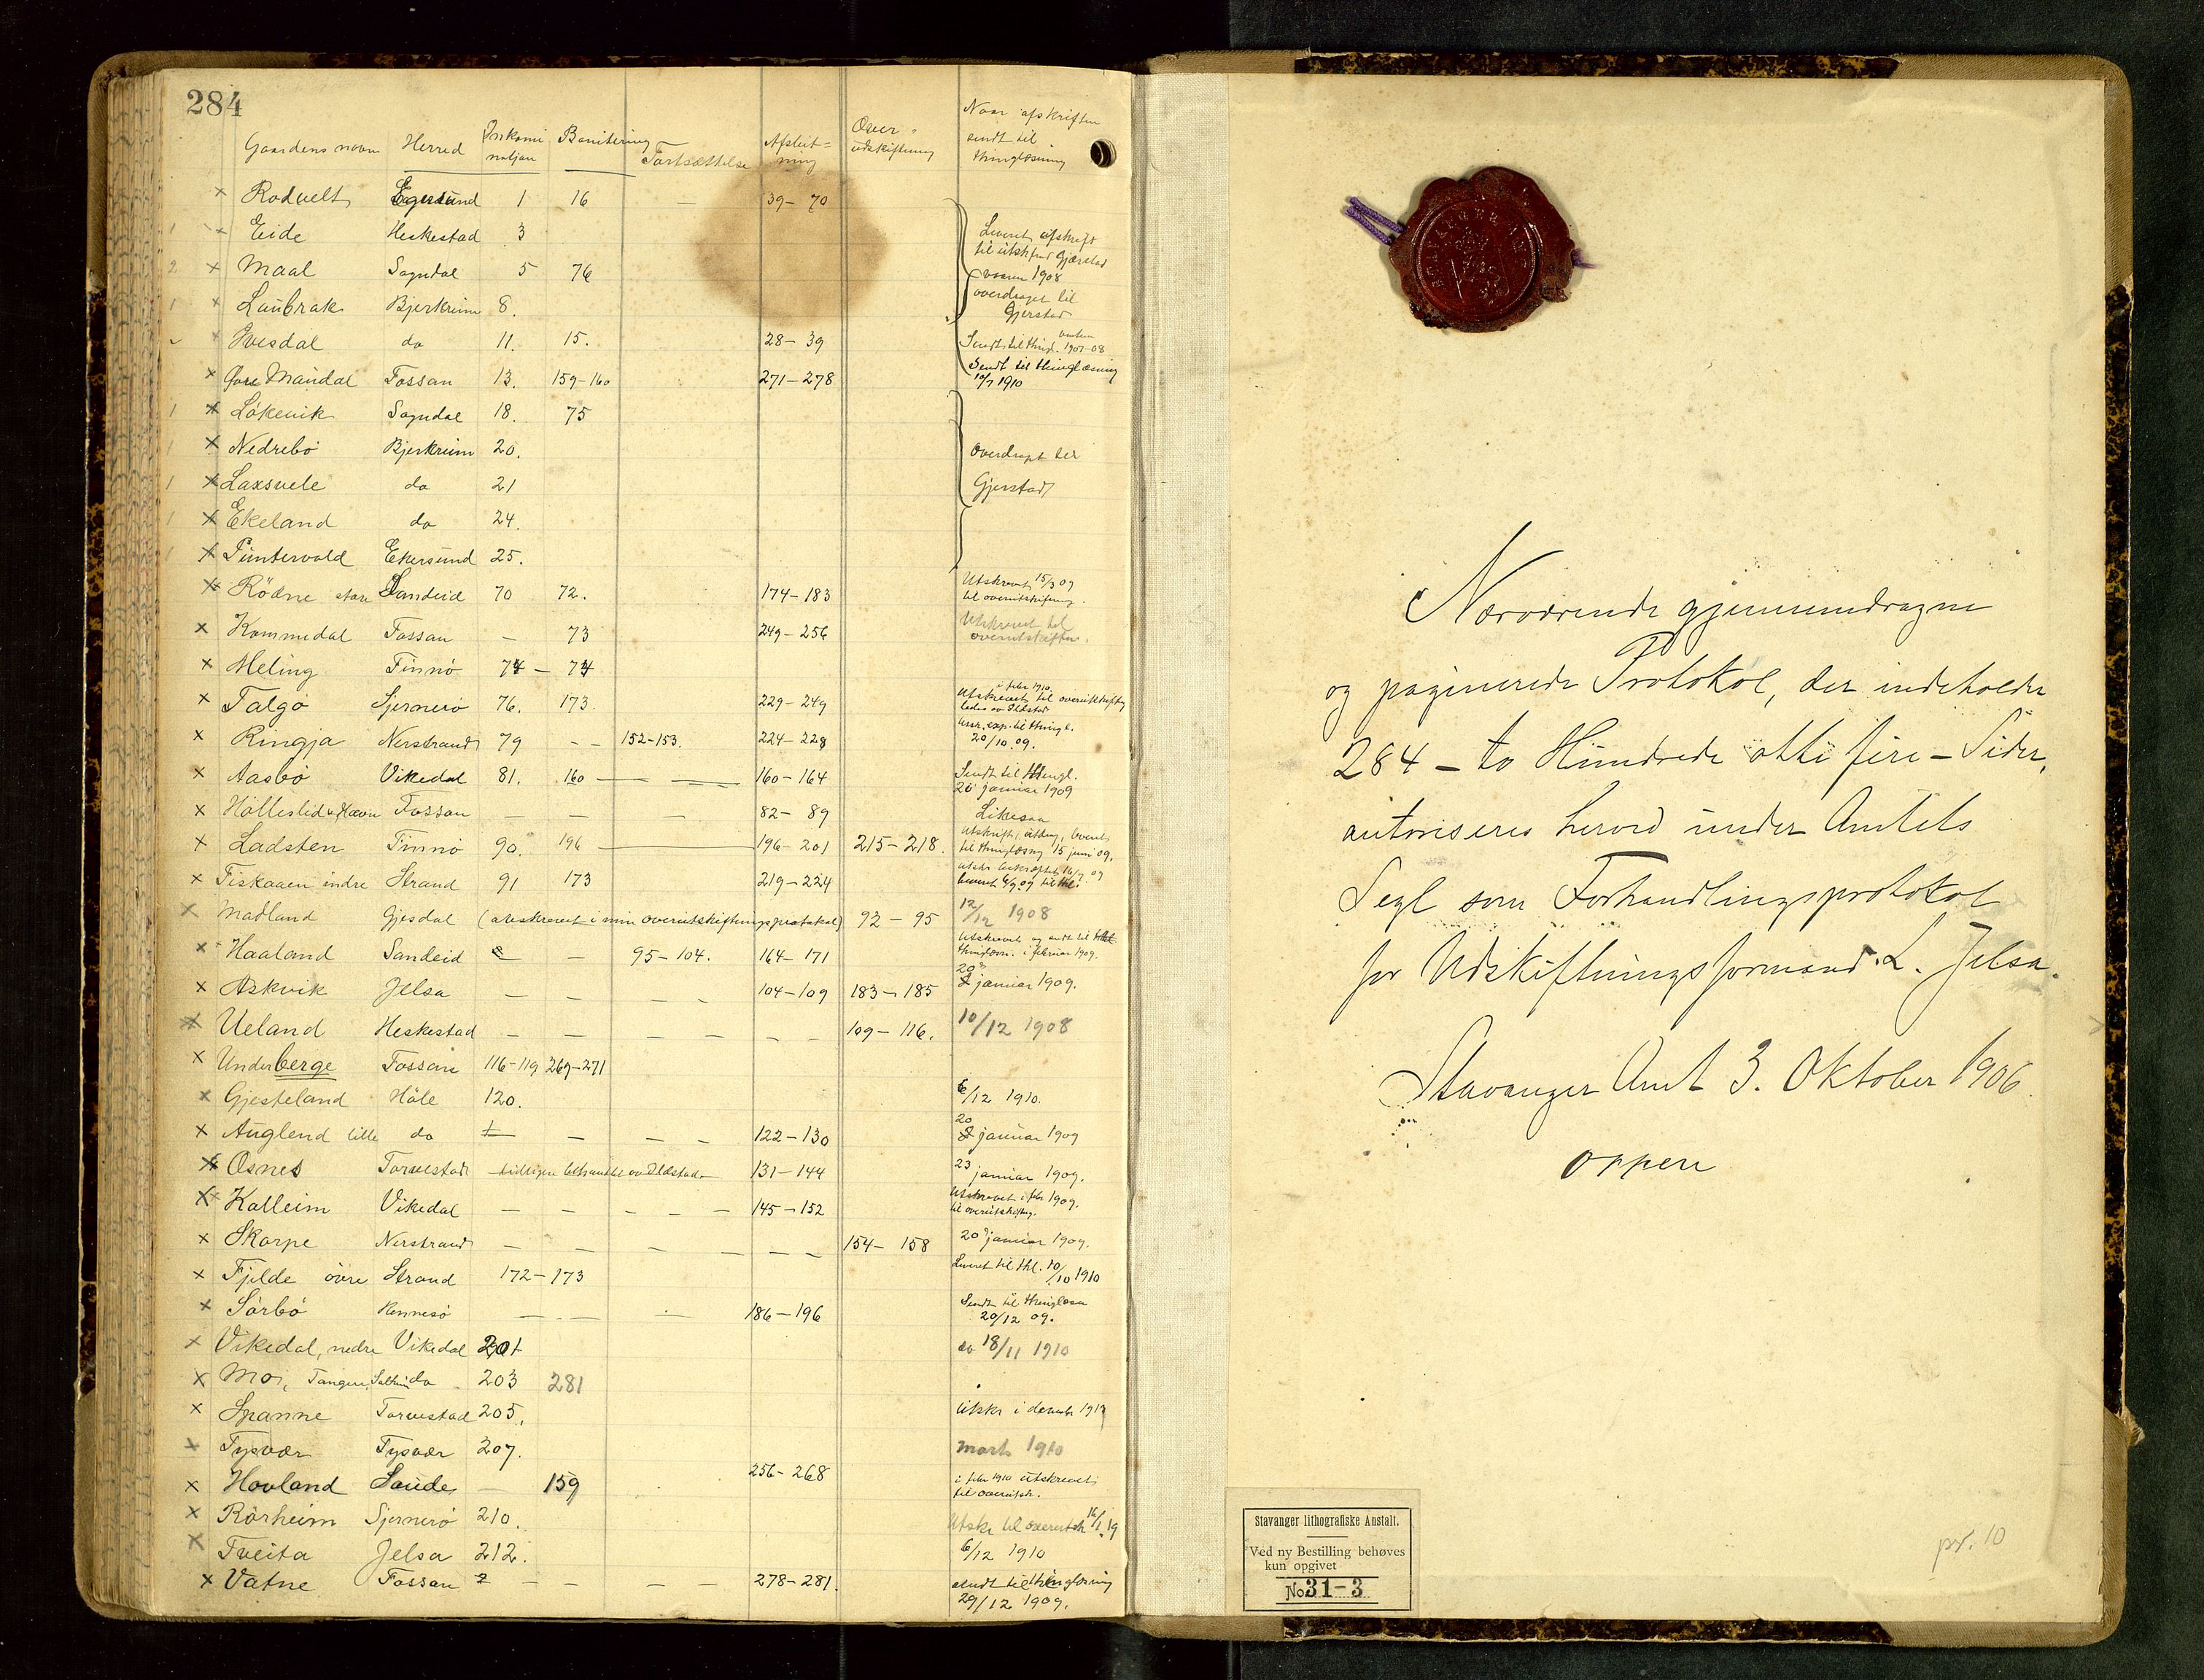 284
Gaardens navn Herred Inkami natjon Bonitering Fortsættelse Afslut= ning Over= udskiftning Naar afskriften sendt til thinglæsning
× Rodvelt Egersund 1 16 — 39 - 70
1 × Eide Heskestad 3 Leveret afskrift til utskfmd Gjærstad
2 × Maal Sogndal 5 76 vaaren 1908
1 × Laubrak Bjerkreim 8. overdraget til Gjerstad
× Hvesdal do 11. 15. 28 - 39 Sendt til thingl. vinteren 1907-08
× Øvre Maudal Fossan 13. 159-160 271-278 Sendt til thinglæsning 10/7 1910
1 × Lökevik Sogndal 18. 75
1 × Nedrebö Bjerkreim 20. Overdraget til
1 × Laxsvele do 21 Gjerstad
1 × Ekeland do 24.
1 × Puntervold Ekersund 25.
× Rödne store Sandeid 70 72. 174-183 Utskrevet 15/3 09 til overutskiftning.
× Kommedal Fossan — 73 249-256 Utskrevet til overutskiftn.
× Meling Finnö 74 — 74
× Talgö Sjernerö 76. 173. 229-249 i febr 1910. Utskrevet til overutskiftning
× Ringja Nerstrand 79 - - 152-153. 224-228 20/10.09.
× Aasbö Vikedal 81. 160 — — 160-164 Sendt til thingl. 20 januar 1909
× Hölleslid Fossan — — — 82 - 89 Likesaa
× Ladsten Finnö 90. 196 — 196-201 215-218. til thinglæsng 15 juni 09.
× Fiskaaen indre Strand 91 173 219-224 leveret 6/9 09 til thl.
× Madland Gjesdal (utskrevet i min overutskiftningsprotokol) 92 - 95 12/12 1908
× Haaland Sandeid — 95-104. 164-171 Utskrevet og sendt til thinglæsn. i februar 1909.
× Askvik Jelsa — — — — 104-109 183-185 20 januar 1909.
× Ueland Heskestad — — — — — — 109-116. 10/12 1908
× Underberge Fossan 116-119 269-271
× Gjesteland Höle 120. 6/12 1910.
× Auglend lille do — — — — 122-130 20 januar 1909
× Osnes Torvestad tidligere behandlet av Ildstad 131-144 23 januar 1909.
× Kalleim Vikedal — — — — — 145-152 Utskrevet i febr 1909. til overutskiftng.
× Skorpe Nerstrand — — — — — — 154-158 20 januar 1909.
× Fjelde övre Strand 172-173 Leveret til thl. 10/10 1910
× Sörbö Rennesö — — — 186-196 Sendt til thinglæsn 20/12 09.
× Vikedal, nedre Vikedal 201 do 18/11 1910
× Mo, Tangen, do 203 281
× Spanne Torvestad 205. Utskr i
× Tysvær Tysvær 207. mars 1910
× Hovland Saude — 159 256-268 i febr 1910 utskrevet til overutsk.
× Rörheim Sjernerö 210. Utskr til overutsk
× Tveita Jelsa 212. 6/12 1910
× Vatne Fossan — — — — 278-281. sendt til thinglæsning 29/12 1909.
Nærværende gjennemdragne
og paginerede Protokol, der indeholder
284 - to Hundrede otti fire - Sider,
autoriseres herved under Amtets
Segl som Forhandlingsprotokol
for Udskiftningsformand L. Jelsa.
Stavanger Amt 3. Oktober 1906.
Stavanger lithografiske Anstalt.
Ved ny Bestilling behøves
kun opgivet
No 31-3
pr. 10